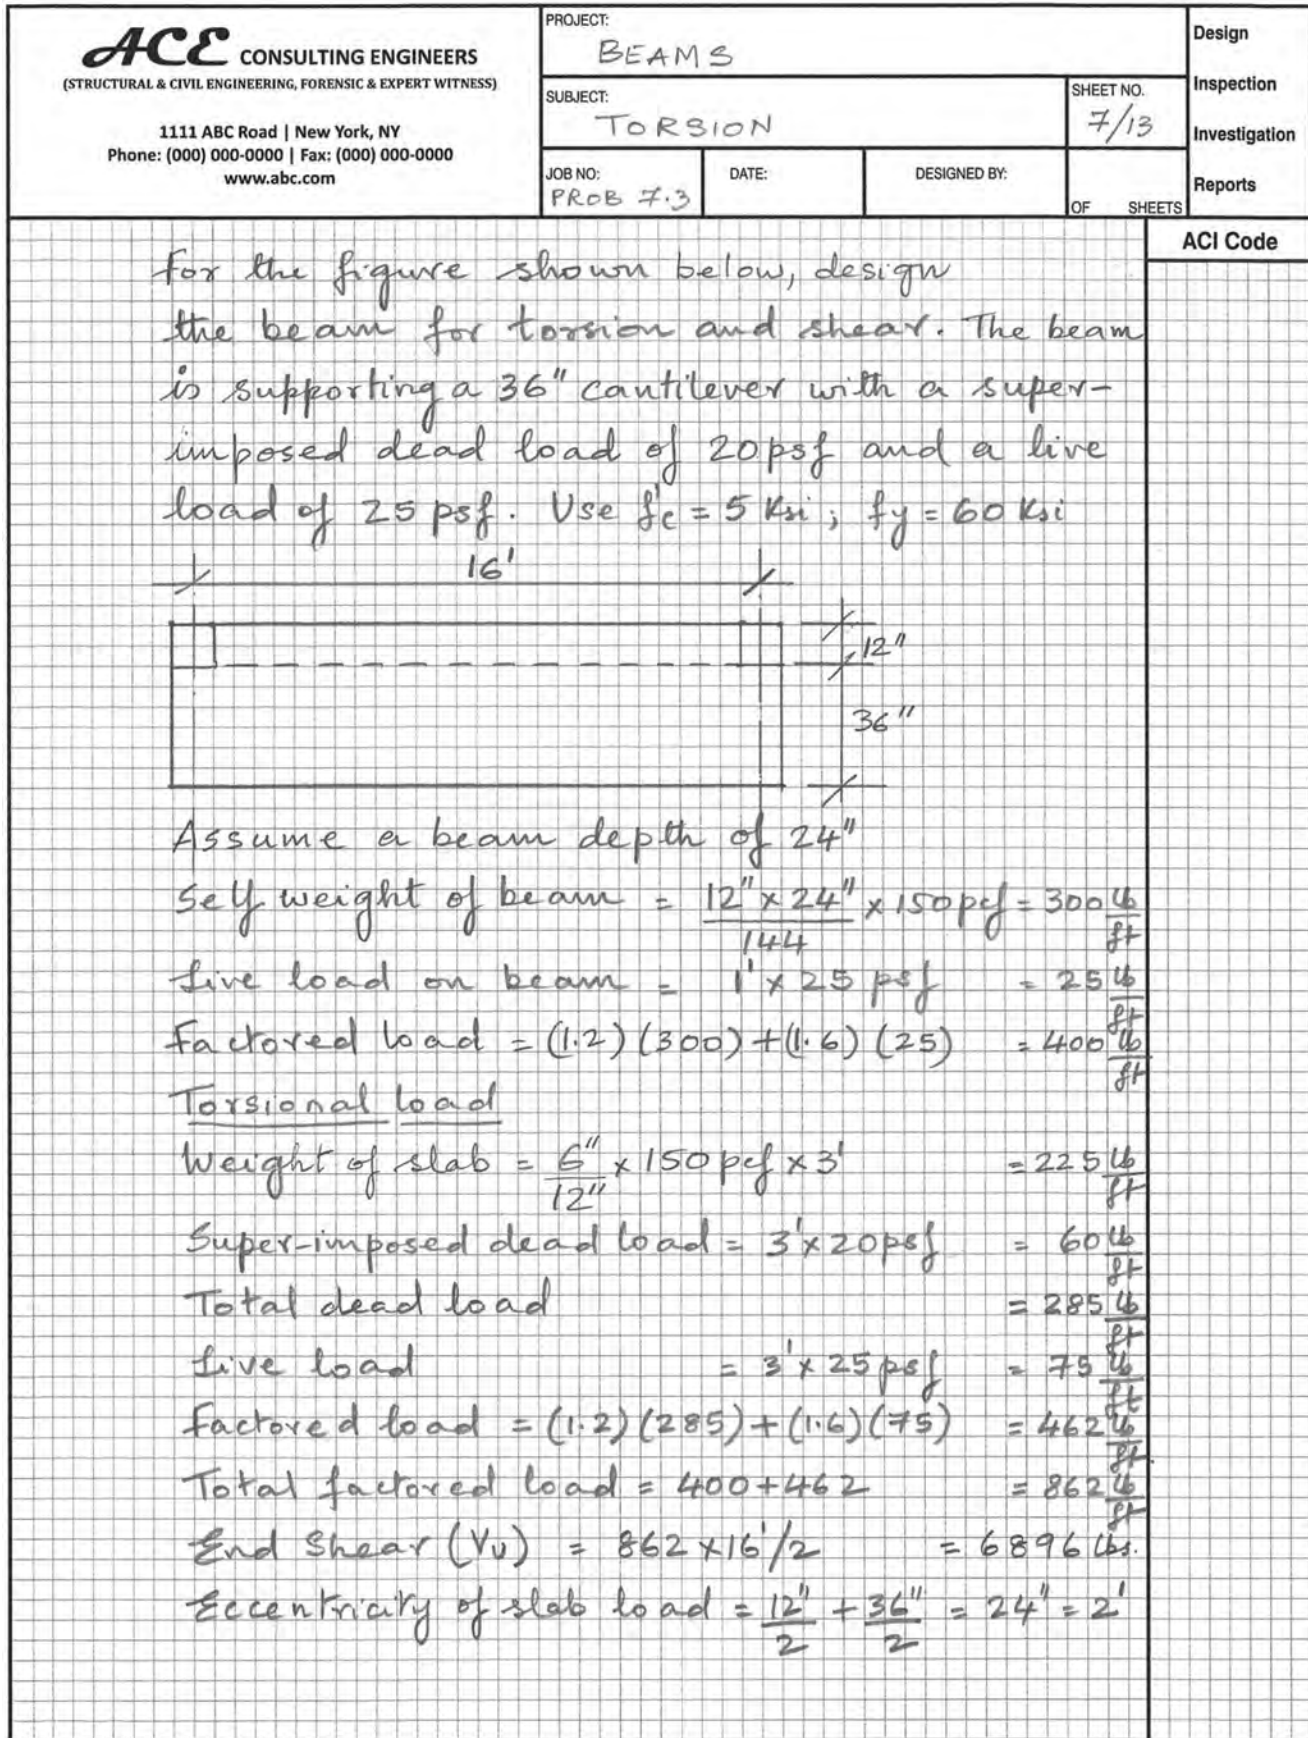 ACE CONSULTING ENGINEERS
(STRUCTURAL & CIVIL ENGINEERING, FORENSIC & EXPERT WITNESS)
1111 ABC Road | New York, NY
Phone: (000) 000-0000 | Fax: (000) 000-0000
www.abc.com
PROJECT:
BEAMS
SUBJECT:
TORSION
SHEET NO.
7/13
JOB NO:
PROB 7.3
DATE:
DESIGNED BY:
OF SHEETS
Design
Inspection
Investigation
Reports
ACI Code
For the figure shown below, design
the beam for torsion and shear. The beam
is supporting a 36" cantilever with a super-
imposed dead load of 20 psf and a live
load of 25 psf. Use f'c = 5 Ksi; fy = 60 Ksi
16'
12"
36"
Assume a beam depth of 24"
Self weight of beam = 12" x 24" / 144 x 150 pcf = 300 lb/ft
Live load on beam = 1' x 25 psf = 25 lb/ft
Factored load = (1.2) (300) + (1.6) (25) = 400 lb/ft
Torsional load
Weight of slab = 6" / 12" x 150 pcf x 3' = 225 lb/ft
Super-imposed dead load = 3' x 20 psf = 60 lb/ft
Total dead load = 285 lb/ft
Live load = 3' x 25 psf = 75 lb/ft
Factored load = (1.2) (285) + (1.6) (75) = 462 lb/ft
Total factored load = 400 + 462 = 862 lb/ft
End Shear (Vu) = 862 x 16'/2 = 6896 lbs.
Eccentricity of slab load = 12"/2 + 36"/2 = 24" = 2'